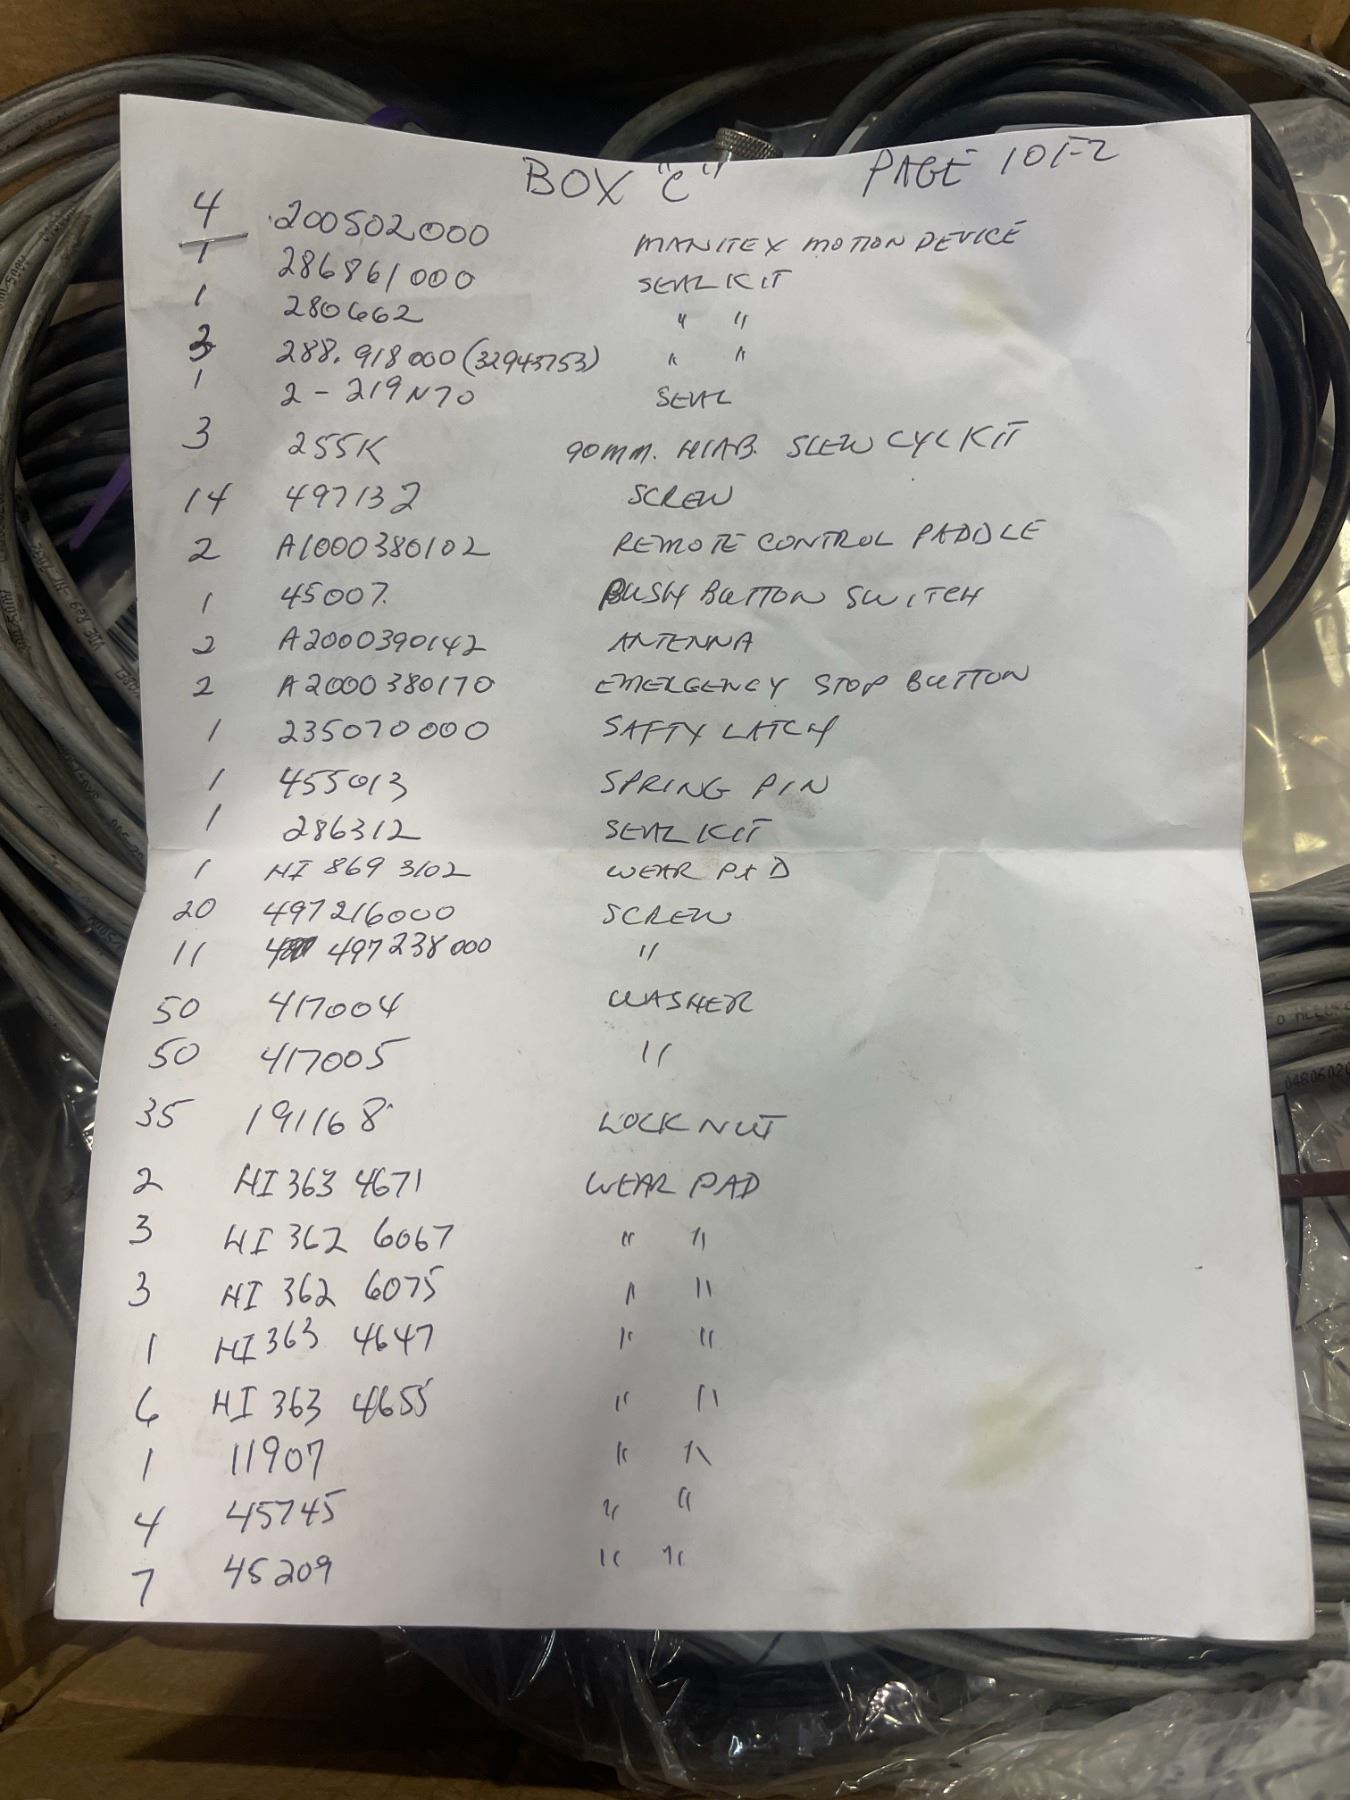 BOX "C" PAGE 1 OF 2
4 200502000 MANITEX MOTION DEVICE
1 286861000 SEAL KIT
1 280662 " "
3 288.918000 (32943753) " "
1 2-219N70 SEAL
3 255K 90MM. HIAB. SLEW CYL KIT
14 497132 SCREW
2 A1000380102 REMOTE CONTROL PADDLE
1 45007. PUSH BUTTON SWITCH
2 A2000390142 ANTENNA
2 A2000380170 EMERGENCY STOP BUTTON
1 235070000 SAFTY LATCH
1 455013 SPRING PIN
1 286312 SEAL KIT
1 HI 869 3102 WEAR PAD
20 497216000 SCREW
11 497238000 "
50 417004 WASHER
50 417005 "
35 191168 LOCK NUT
2 HI 363 4671 WEAR PAD
3 HI 362 6067 " "
3 HI 362 6075 " "
1 HI 363 4647 " "
6 HI 363 4655 " "
1 11907 " "
4 45745 " "
7 45209 " "